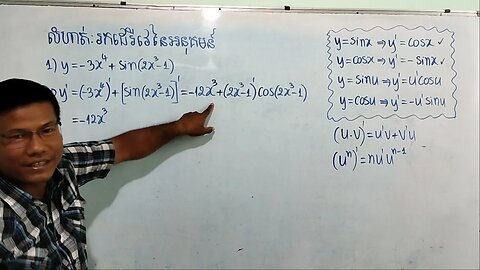 លំហាត់: រកដេរីវេនៃអនុគមន៍
1) y=-3x⁴+sin(2x³-1)
y'=(-3x⁴)'+[sin(2x³-1)]'=-12x³+(2x³-1)'cos(2x³-1)
=-12x³
y=sinx⇒y'=cosx✓
y=cosx⇒y'=-sinx✓
y=sinu⇒y'=u'cosu
y=cosu⇒y'=-u'sinu
(u.v)'=u'v+v'u
(uⁿ)'=nu'uⁿ⁻¹